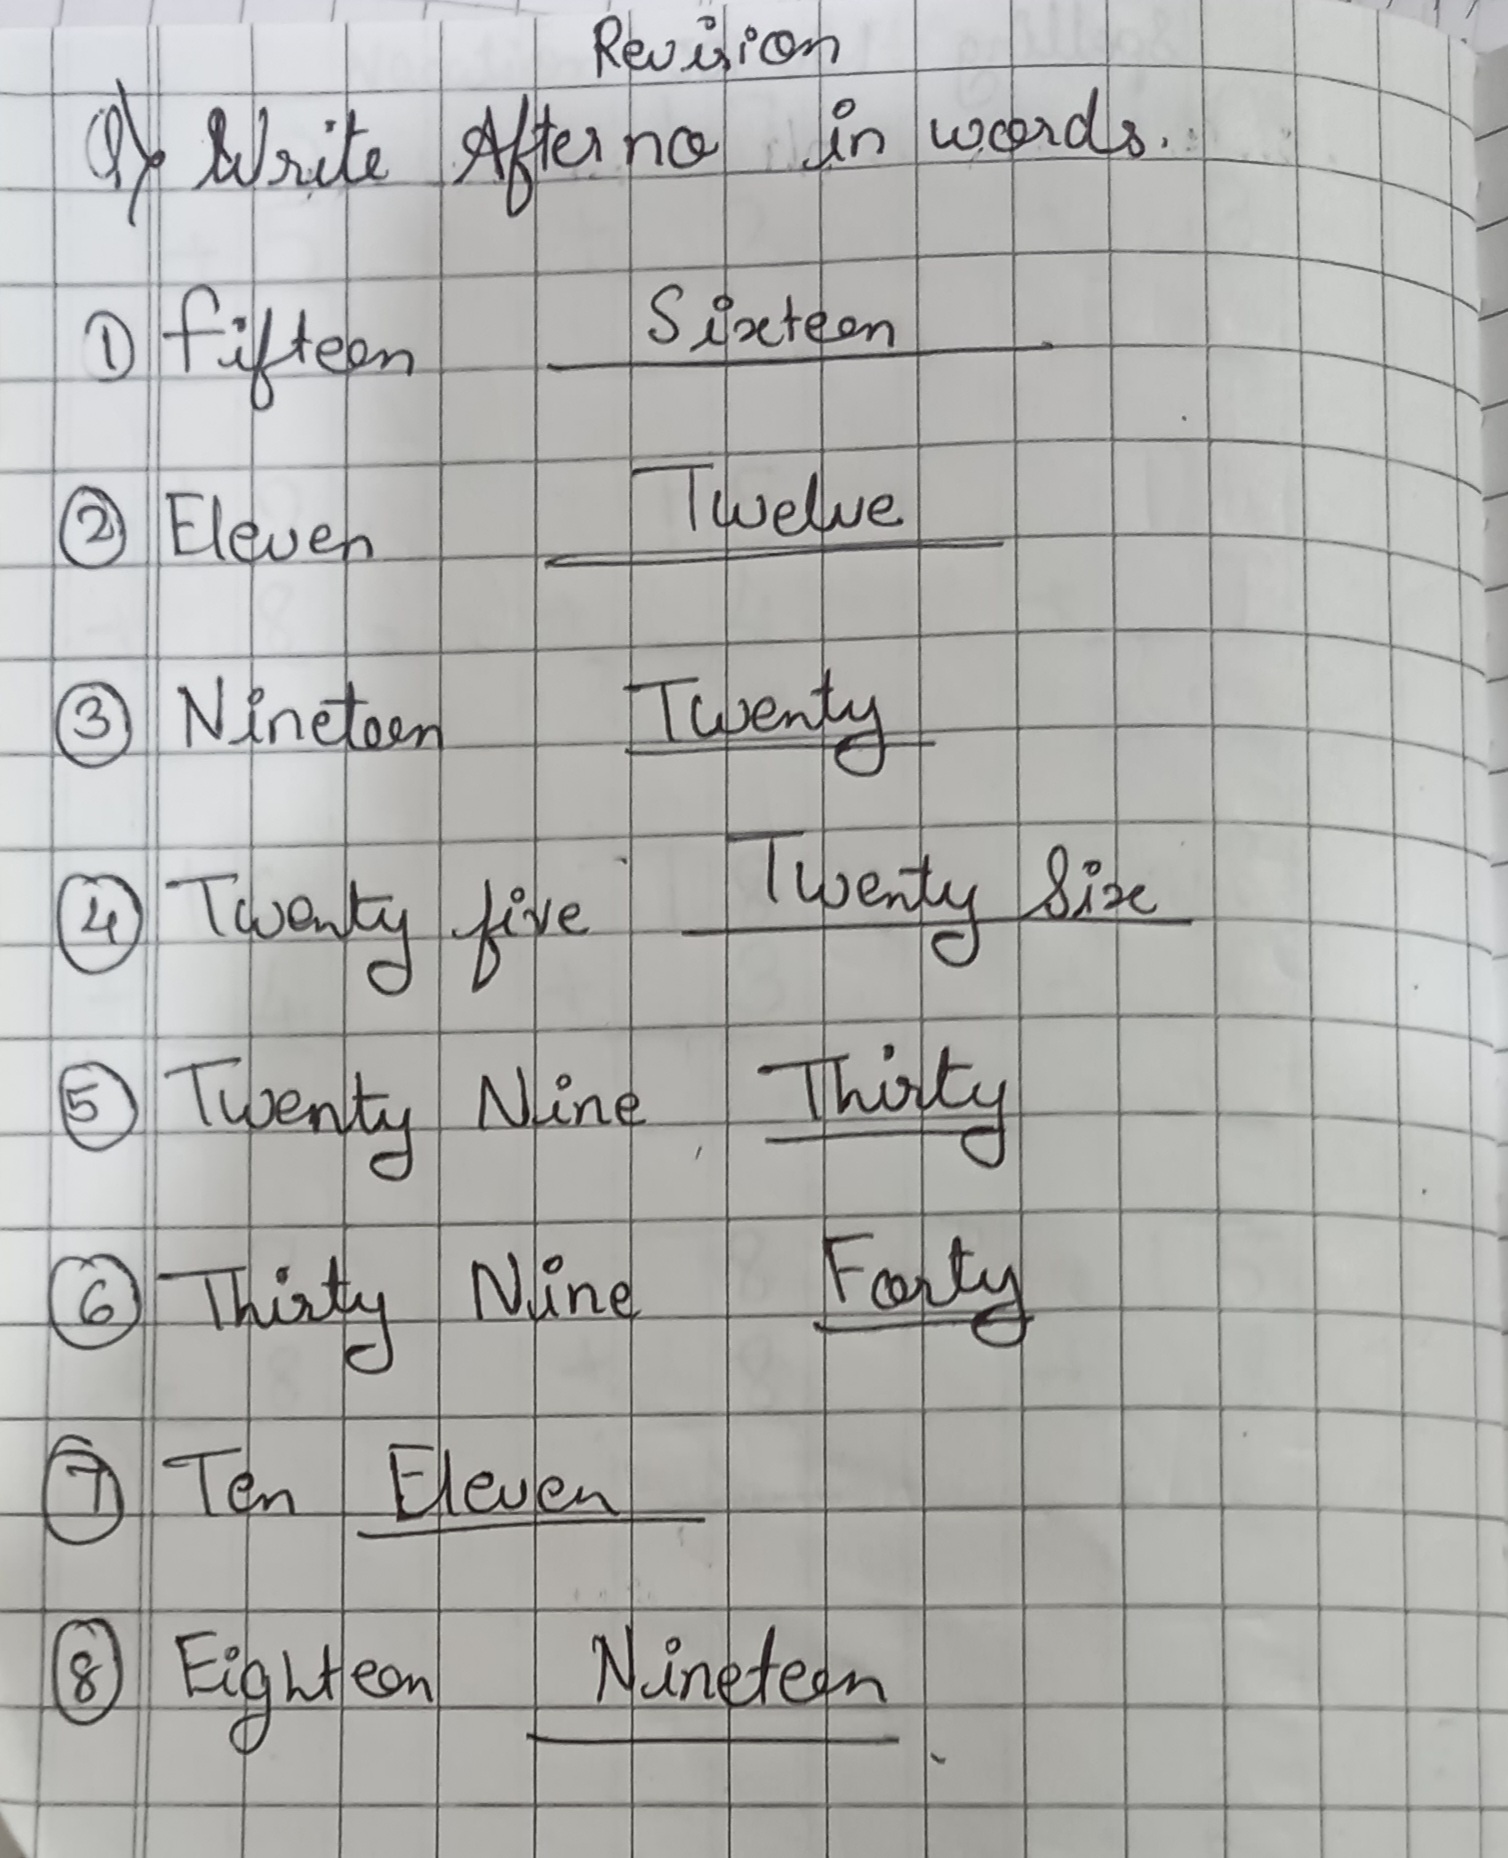 Revision
Q) Write After no in words.
① fifteen Sixteen
② Eleven Twelve
③ Nineteen Twenty
④ Twenty five Twenty Six
⑤ Twenty Nine Thirty
⑥ Thirty Nine Forty
⑦ Ten Eleven
⑧ Eighteen Nineteen